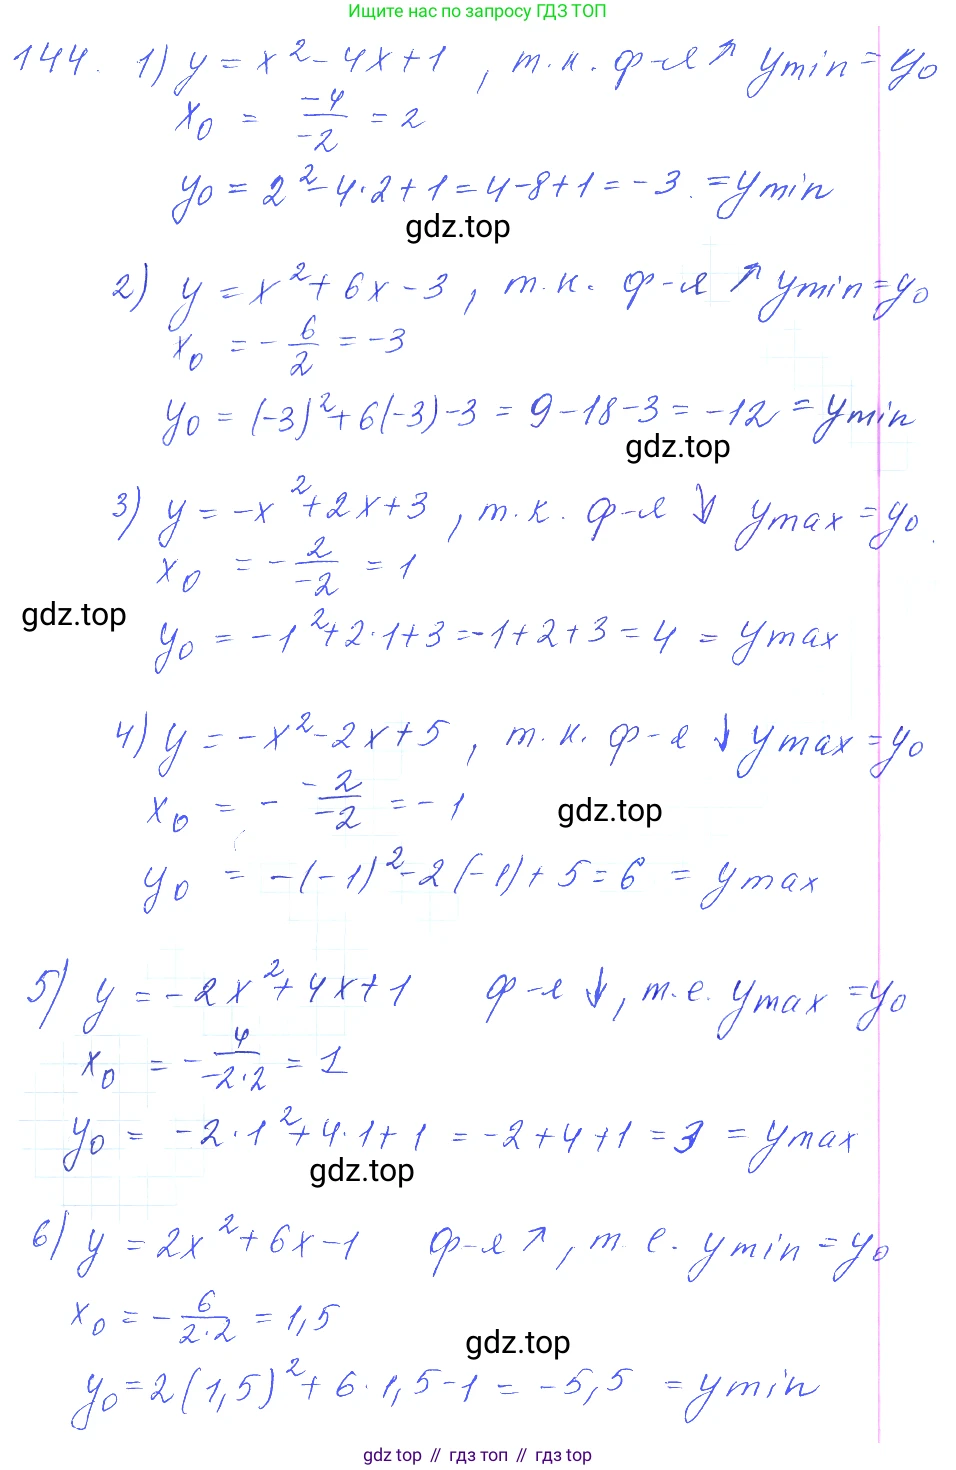 Ищите нас по запросу ГДЗ ТОП
144. 1) y = x² - 4x + 1, т.к. ф-я ↗ ymin = y₀
x₀ = -4/-2 = 2
y₀ = 2² - 4·2 + 1 = 4 - 8 + 1 = -3. = ymin
gdz.top
2) y = x² + 6x - 3, т.к. ф-я ↗ ymin = y₀
x₀ = -6/2 = -3
y₀ = (-3)² + 6(-3) - 3 = 9 - 18 - 3 = -12 = ymin
gdz.top
3) y = -x² + 2x + 3, т.к. ф-я ↓ ymax = y₀
x₀ = -2/-2 = 1
gdz.top
y₀ = -1² + 2·1 + 3 = -1 + 2 + 3 = 4 = ymax
4) y = -x² - 2x + 5, т.к. ф-я ↓ ymax = y₀
x₀ = - -2/-2 = -1
gdz.top
y₀ = -(-1)² - 2(-1) + 5 = 6 = ymax
5) y = -2x² + 4x + 1 ф-я ↓, т.е. ymax = y₀
x₀ = -4/-2·2 = 1
y₀ = -2·1² + 4·1 + 1 = -2 + 4 + 1 = 3 = ymax
gdz.top
6) y = 2x² + 6x - 1 ф-я ↗, т.е. ymin = y₀
x₀ = -6/2·2 = 1,5
gdz.top
y₀ = 2(1,5)² + 6·1,5 - 1 = -5,5 = ymin
gdz top // гдз топ // gdz top